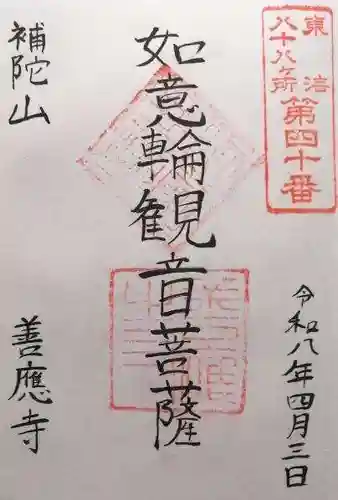 東沿
八十八ヶ所
第四十番
令和八年四月三日
如意輪観音菩薩
補陀山
善應寺